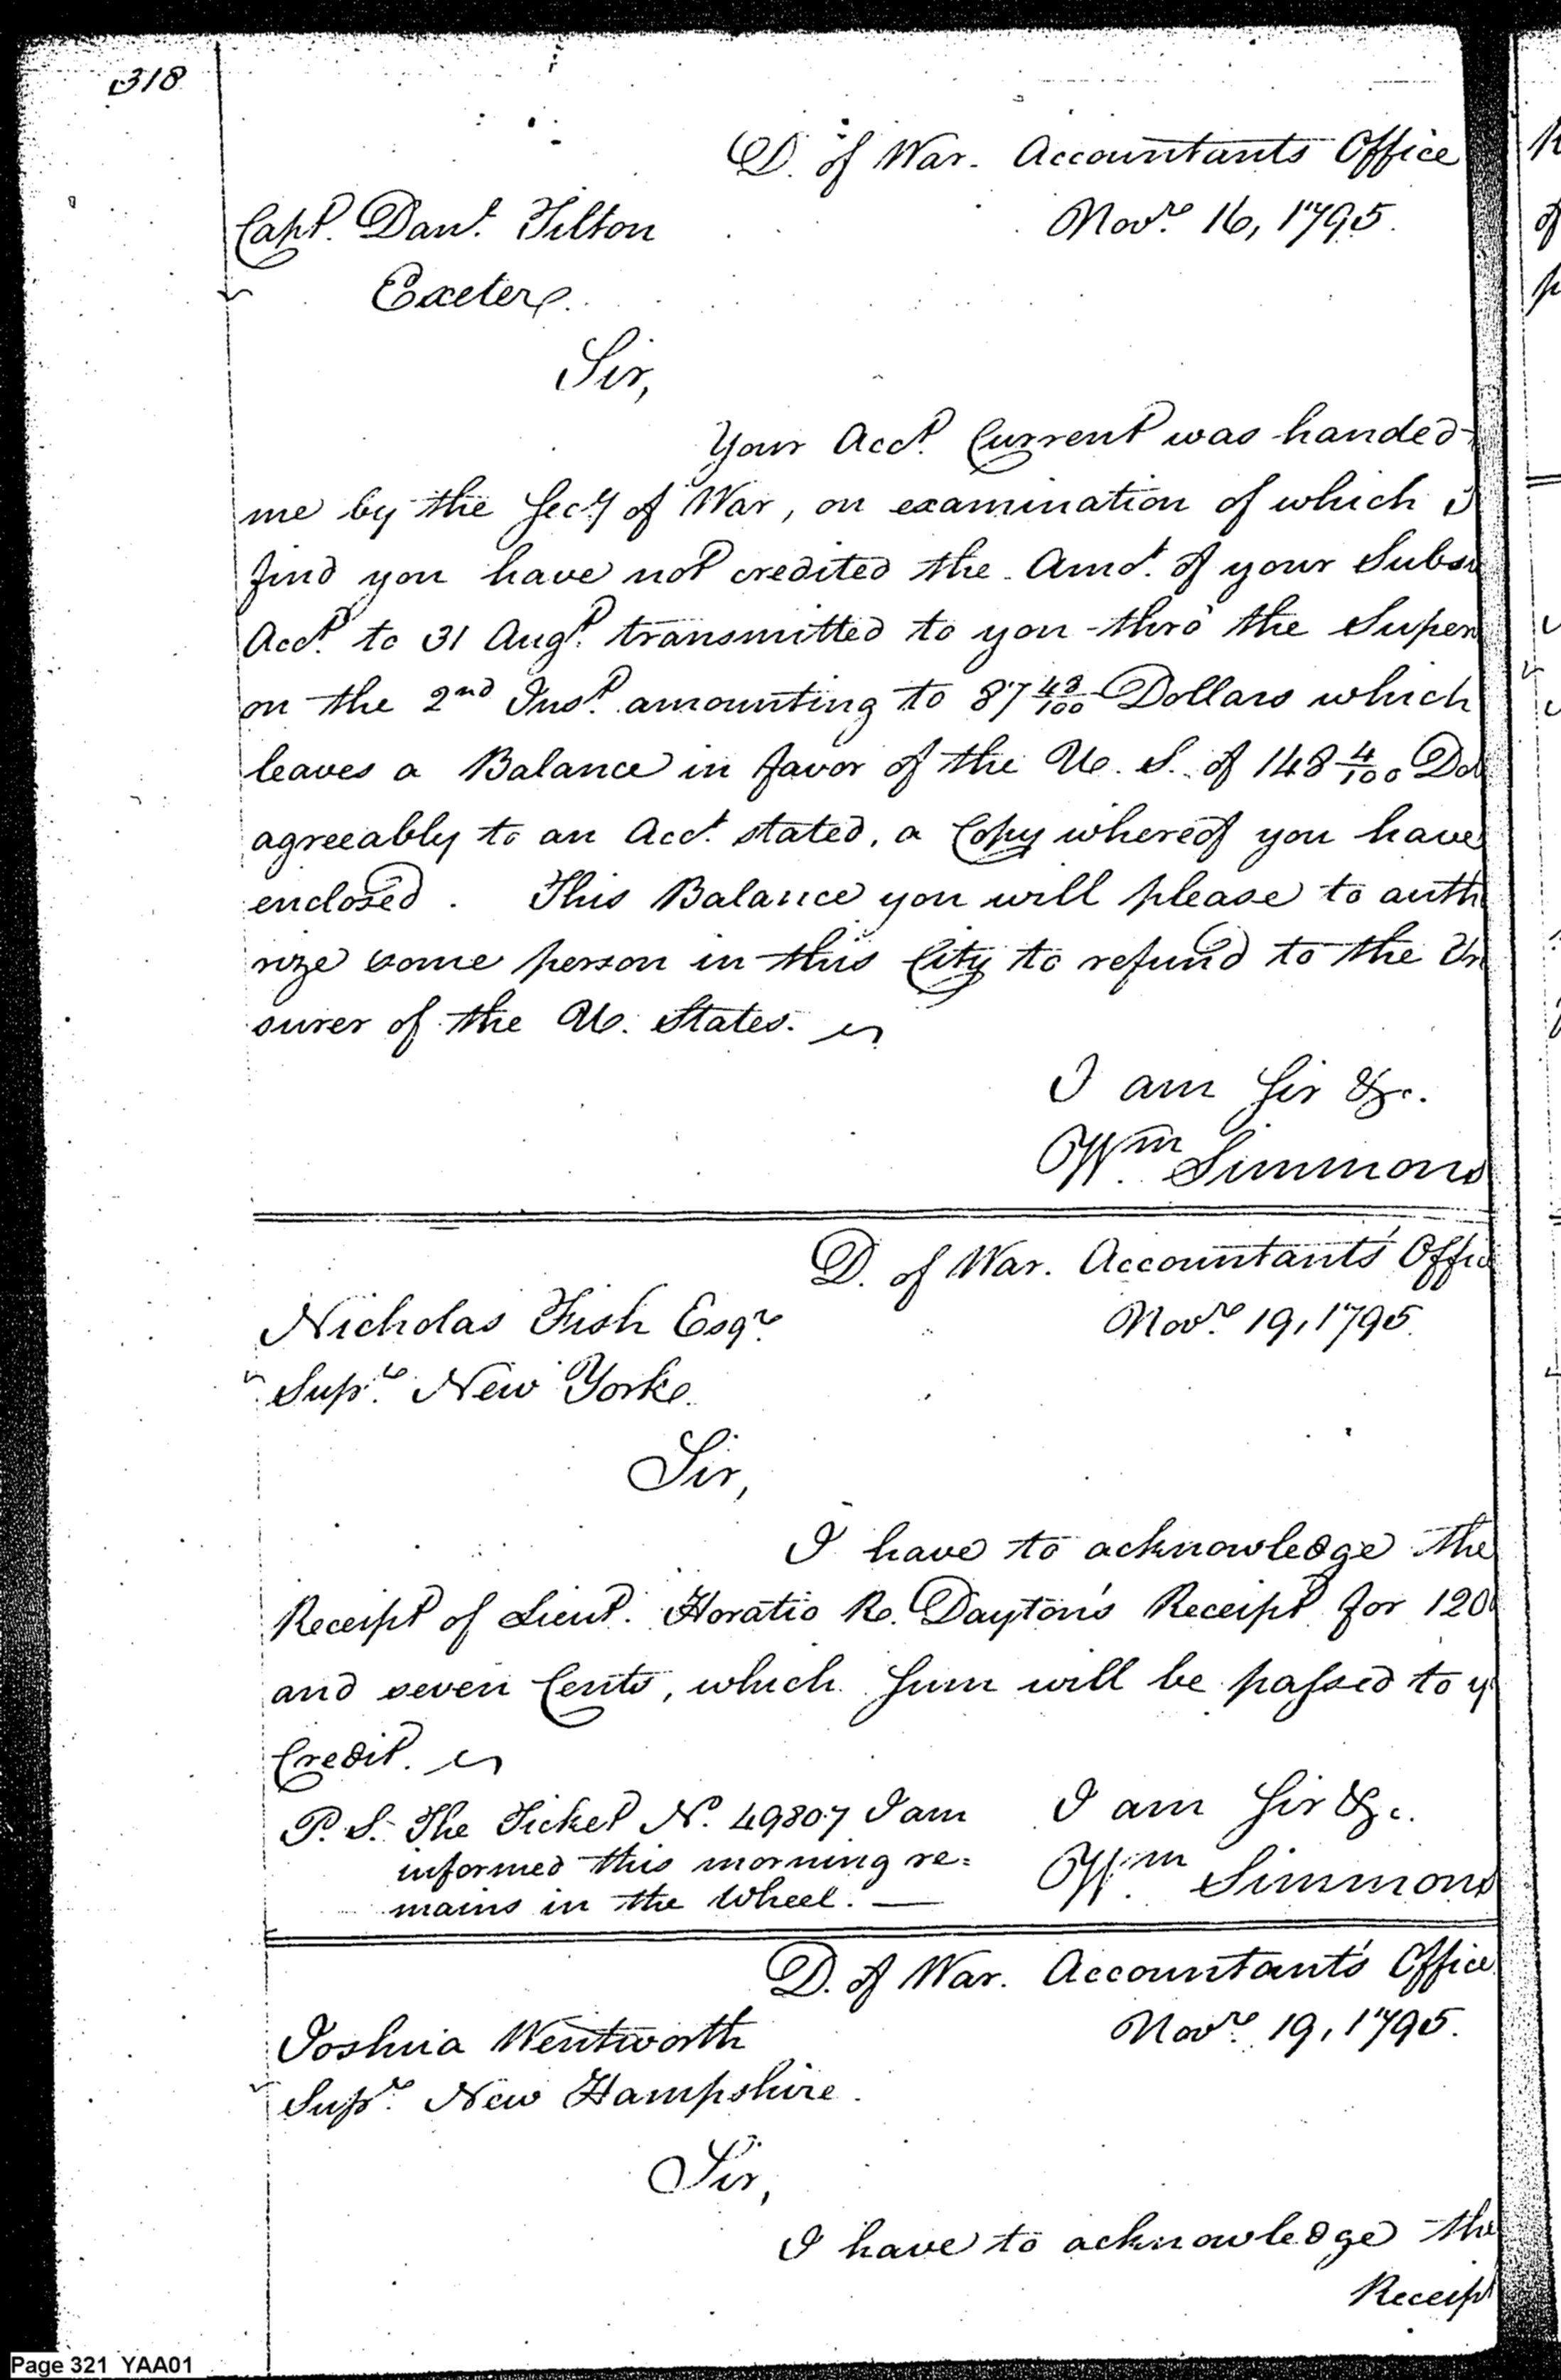 318
D. of War. Accountants Office
Novr. 16, 1795.
Capt. Danl. Tilton
Exeter.
Sir,
Your Acct. Current was handed
me by the Secy of War, on examination of which I
find you have not credited the Amot. of your Subsi
Acct. to 31 Augt. transmitted to you thro' the Super
on the 2nd Inst. amounting to 87 48/100 Dollars which
leaves a Balance in favor of the U. S. of 148 4/100 Dol
agreeably to an Acct. stated, a Copy whereof you have
enclosed. This Balance you will please to autho
rize some person in this City to refund to the Tre
surer of the U. States.
I am Sir &c.
Wm. Simmons
D. of War. Accountant's Office
Novr. 19, 1795.
Nicholas Fish Esqr.
Supr. New York.
Sir,
I have to acknowledge the
Receipt of Lieut. Horatio R. Dayton's Receipt for 120
and seven Cents, which Sum will be passed to y
Credit.
P. S. The Ticket No. 49807 I am
informed this morning re=
mains in the Wheel. —
I am Sir &c.
Wm. Simmons
D. of War. Accountant's Office
Novr. 19, 1795.
Joshua Wentworth
Supr. New Hampshire.
Sir,
I have to acknowledge the
Receipt
Page 321 YAA01